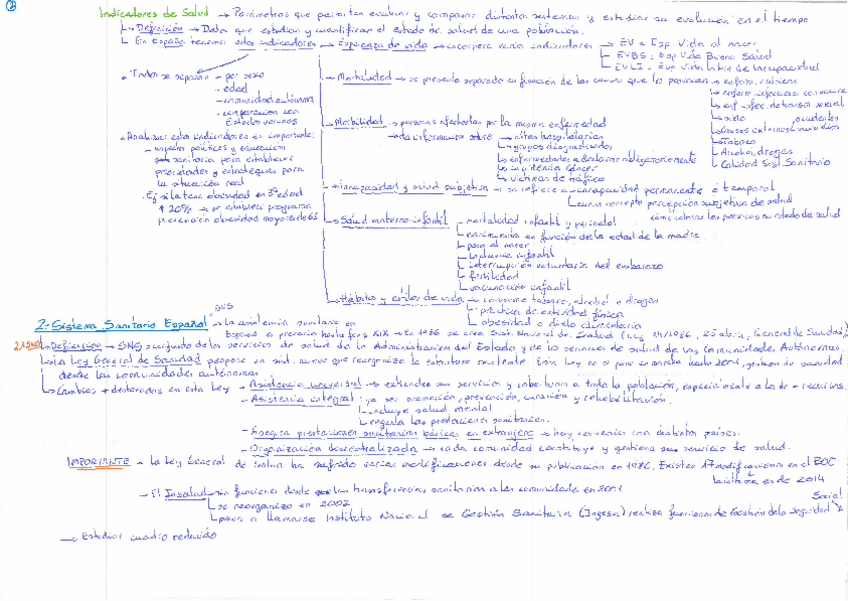 ②
Indicadores de Salud → Parámetros que permiten evaluar y comparar distintos sistemas y estudiar su evolución en el tiempo
↳ Definición → Datos que estudian y cuantifican el estado de salud de una población.
↳ En España tenemos estos indicadores → Esperanza de vida → incorpora varios indicadores → EV = Esp Vida al nacer
↳ EVBS: Esp Vida Buena Salud
↳ EVLI = Esp Vida Libre de Incapacidad
• Todos se separan - por sexo
- edad
- comunidad autónoma
- comparación con Estados vecinos
→ Mortalidad → se presenta separada en función de las causas que la provocan → enferm. crónicas
↳ enferm infecciosas comunes
↳ enf infec. de transm sexual
↳ sida
↳ Causas externas accidentes
↳ Tabaco
↳ Alcohol, drogas
↳ Calidad Sist Sanitario
→ Morbilidad → personas afectadas por la misma enfermedad
→ da información sobre → altas hospitalarias
↳ grupos diagnosticados
↳ enfermedades a declarar obligatoriamente
↳ incidencia Cáncer
↳ víctimas de tráfico
• Analizar estos indicadores es importante:
- aspectos políticos y
sanitaria para establecer
prioridades y estrategias para
la situación real
. Ej si la tasa obesidad en 3ª edad
↑ 20% → se establece programa
prevención obesidad mayores de 65
→ Incapacidad y salud subjetiva → se refiere a incapacidad permanente o temporal
↳ como concepto percepción subjetiva de salud
como valoran las personas su estado de salud
→ Salud materno-infantil - mortalidad infantil y perinatal
↳ en función de la edad de la madre
↳ peso al nacer
↳ lactancia infantil
↳ interrupción voluntaria del embarazo
↳ fertilidad
↳ vacunación infantil
→ Hábitos y estilos de vida → consumo tabaco, alcohol o drogas
↳ práctica de actividad física
↳ obesidad o dieta alimentaria
2. Sistema Sanitario Español → la asistencia sanitaria en
SNS
España es precaria hasta fines XIX → En 1986 se crea Sist. Nacional de Salud (Ley 14/1986, 25 abril, General de Sanidad)
2.1 SNS → Definición → SNS = conjunto de los servicios de salud de la Administración del Estado y de los servicios de salud de las Comunidades Autónomas
↳ La Ley General de Sanidad propone un sist. nuevo que reorganiza la estructura existente. Esta Ley no se pone en marcha hasta 2001, gestión de sanidad
desde las comunidades autónomas
↳ Cambios + destacados en esta Ley - Asistencia universal → extiende sus servicios y cobertura a toda la población, especialmente a los de - recursos.
- Asistencia integral: ya sea promoción, prevención, curación y rehabilitación.
↳ incluye salud mental
↳ regula las prestaciones sanitarias.
- Asegura prestaciones sanitarias básicas en extranjero → hay convenios con distintos países.
- Organización descentralizada → cada comunidad constituye y gestiona sus servicio de salud.
IMPORTANTE - La Ley General de Salud ha sufrido varias modificaciones desde su publicación en 1986. Existen 17 modificaciones en el BOE
la última es de 2014
- El Insalud sin funciones desde que las transferencias sanitarias a las comunidades en 2001
↳ se reorganizo en 2002
↳ pasa a llamarse Instituto Nacional de Gestión Sanitaria (Ingesa) realiza funciones de Gestión de la Seguridad
Social
→ Estudiar cuadro reducido